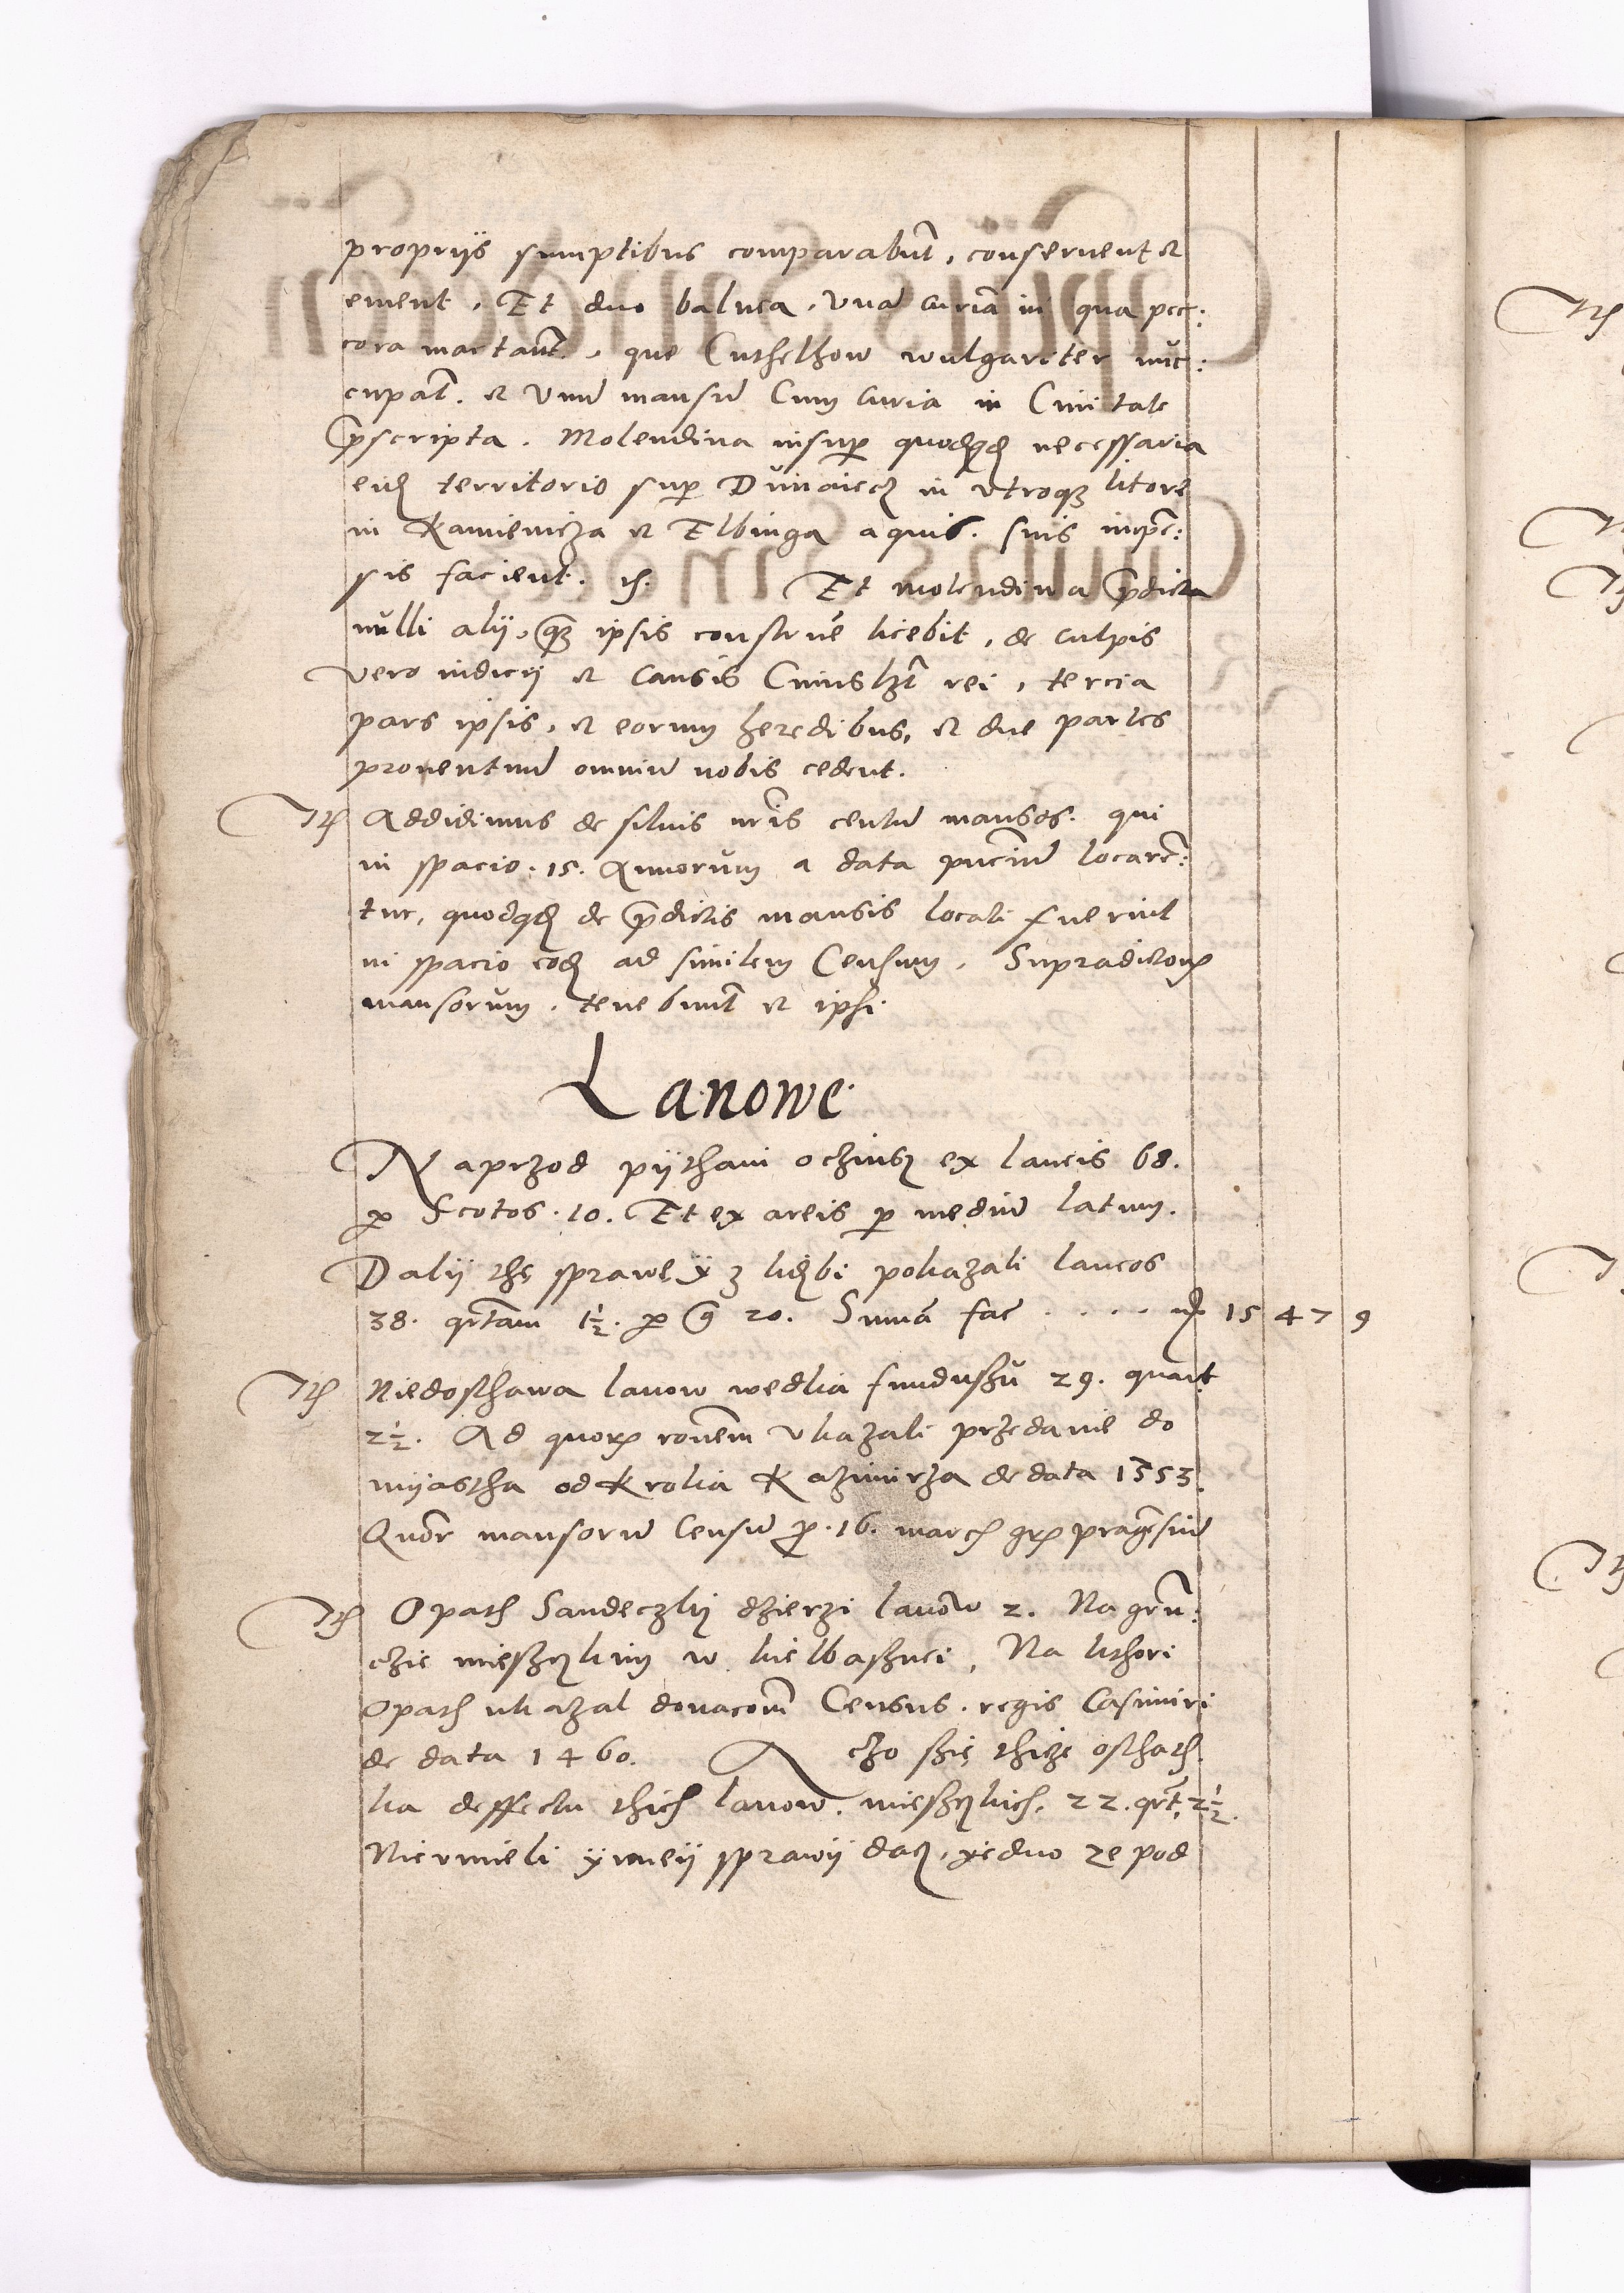 propriis sumptibus comparabūt, conseruent et
ement, Et duo balnea, vnā curiā in qua pec:
cora mactāt, que Cuthelhow wulgariter nūc:
cupāt. et vnū mansū Cum curia in Ciuitate
p̄scripta. Molendina insup quodqd necessaria
eid territorio sup Dunaiecz in vtroq litore
in Kamienicza et Elbinga aquis. suis inpē:
sis facient. Et molendina p̄dicta
nulli alii, q ipsis construē licebit, de culpis
vero iudicij et causis Cuiuslz̄t rei, tercia
pars ipsis, et eorum heredibus, et due partes
prouentuū omniū nobis cedent.
Ith Addidimus de siluis nr̄is centū mansos. qui
in spacio. 15. Annorum a data pn̄ciū locarē:
tur, quodqd de p̄dictis mansis locati fuerint
in spacio eod ad similem Censum, Supradictor
mansorum, tenebunt̄ et ipsi
Lanowe
Naprzod pijthani o czinsz ex laneis 68.
p Scotos. 10. Et ex areis p mediū latum.
Dalij thę sprawę ÿ z liczbi pokazali laneos
38. qr̄tam 1½. p g̃ 20. Summā fac̄ . . . . 15 47 9
Ith Niedosthawa lanow wedlia fundushu 29. quart
2½. Ad quor ronem vkazali przedanie do
mijastha od Krolia Kazimirza de data 1553.
Quor mansorū Censū p. 16. march gr pragēsiū
Ith Opath Sandeczkij dzierzi lanow 2. Na grū:
czie mieshczkim w kielbashnei, Na kthori
Opath ukazal donacom̄ Census. regis Casimiri
de data 1460. A czo shię thicze osthath
ka deffectu thich lanow. mieshczkich. 22. qr̄t. 2½.
Nie vmieli ÿneÿ sprawÿ dacz, yedno ze pod